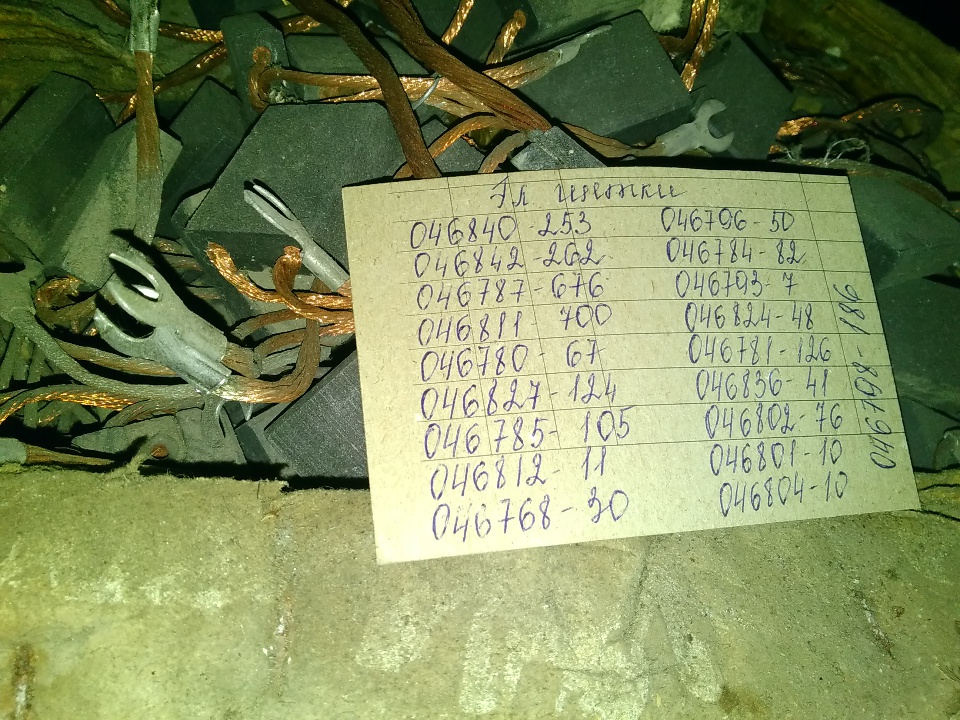 Эл щетки
046840-253 046796-50
046842-262 046784-82
046787-676 046793-7
046811 700 046824-48
046780-67 046781-126
046827-124 046836-41
046785-105 046802-76
046812-11 046801-10
046768-30 046804-10
046798-186